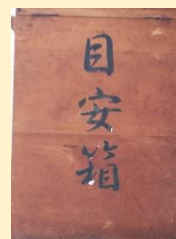 目安箱